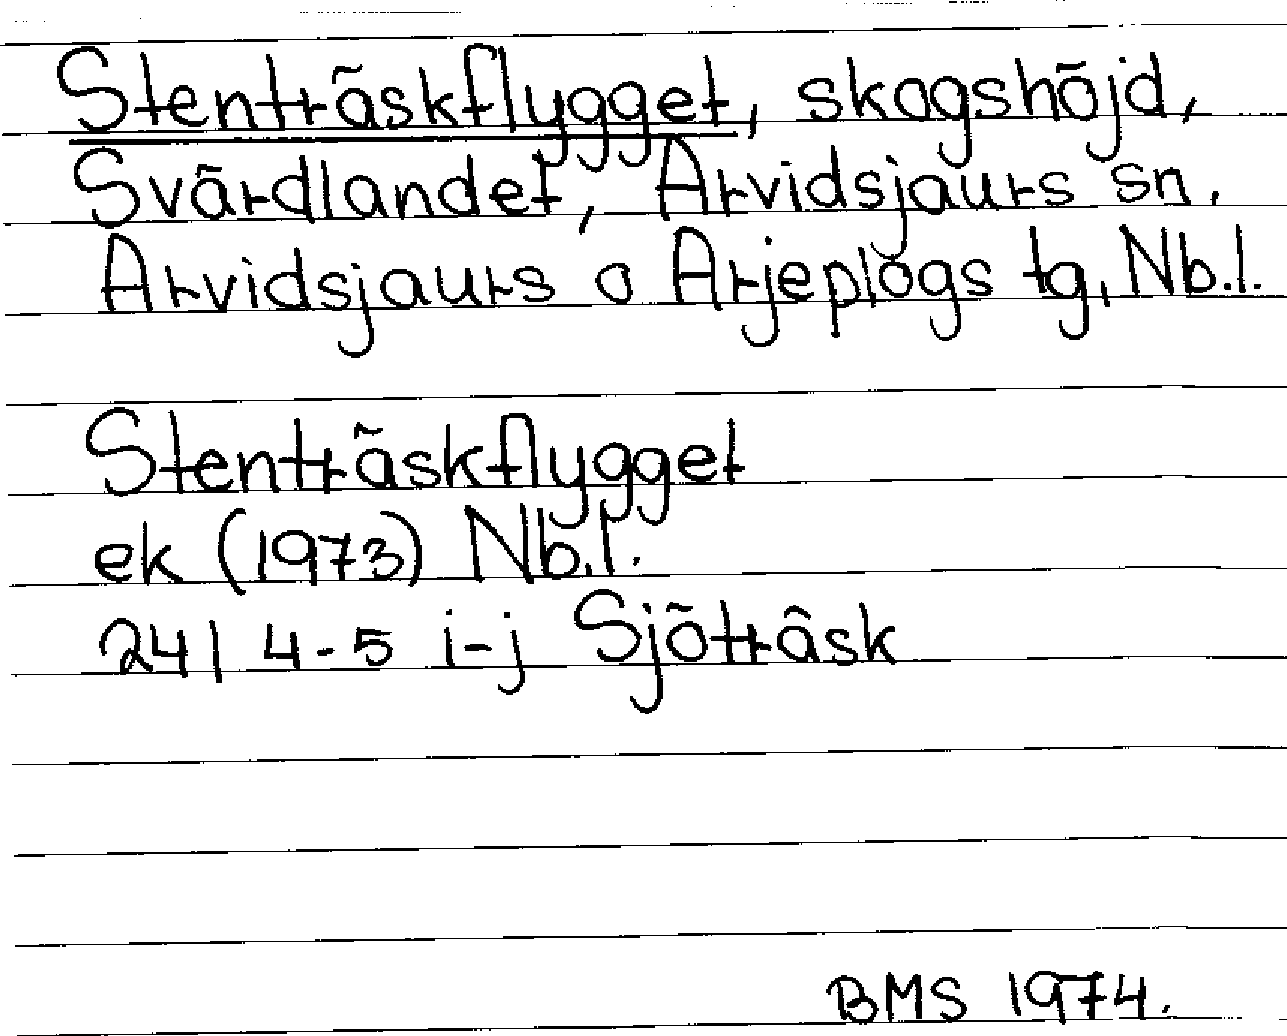 Stenträskflygget, skogshöjd,
Svärdlandet, Arvidsjaurs sn,
Arvidsjaurs o Arjeplogs tg, Nb.l.
Stenträskflygget
ek (1973) Nb.l.
24I 4-5 i-j Sjöträsk
BMS 1974.